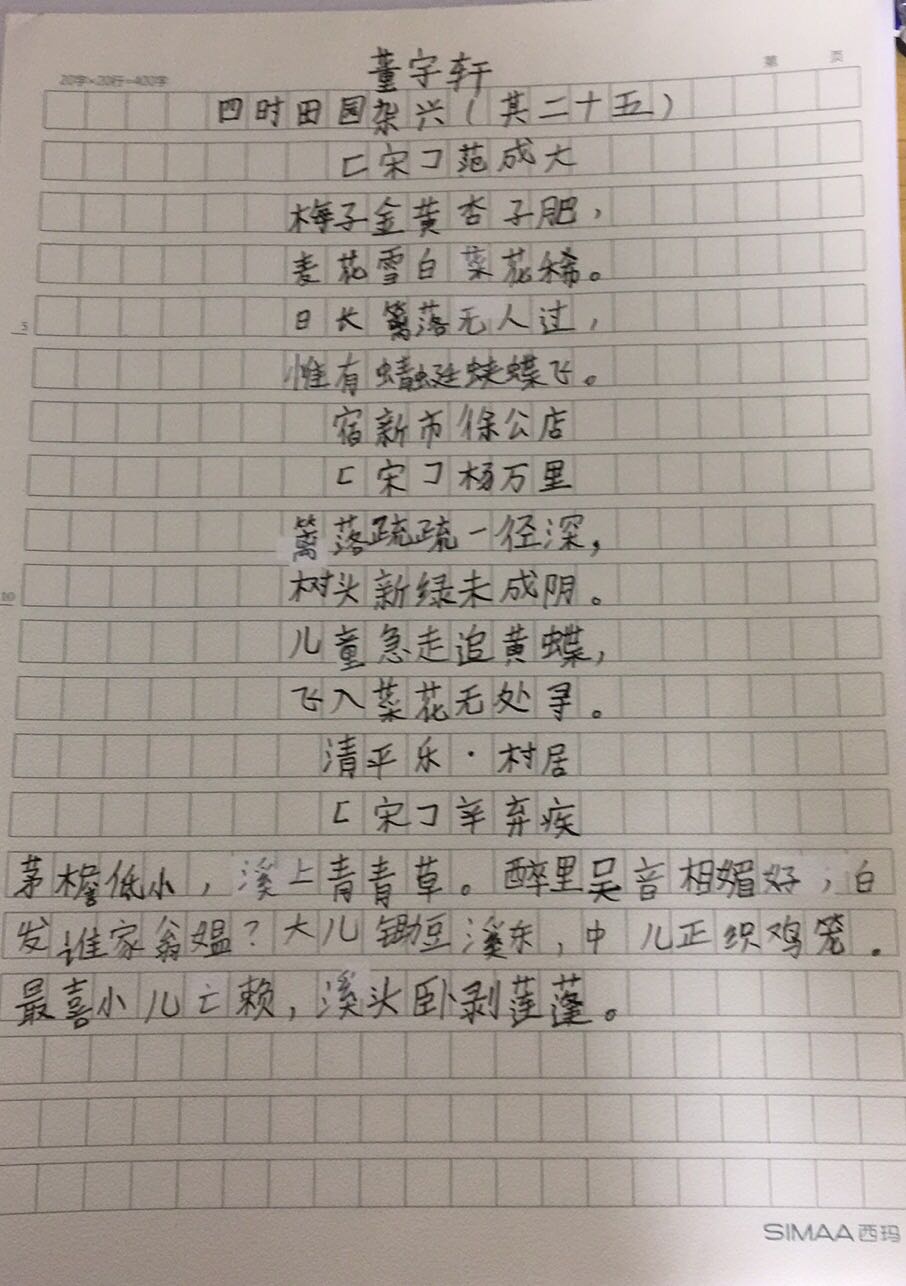 20字×20行=400字
第 页
董宇轩
四时田园杂兴(其二十五)
[宋]范成大
梅子金黄杏子肥,
麦花雪白菜花稀。
日长篱落无人过,
5
惟有蜻蜓蛱蝶飞。
宿新市徐公店
[宋]杨万里
篱落疏疏一径深,
10
树头新绿未成阴。
儿童急走追黄蝶,
飞入菜花无处寻。
清平乐·村居
[宋]辛弃疾
茅檐低小,溪上青青草。醉里吴音相媚好,白
发谁家翁媪?大儿锄豆溪东,中儿正织鸡笼.
最喜小儿亡赖,溪头卧剥莲蓬。
SIMAA西玛